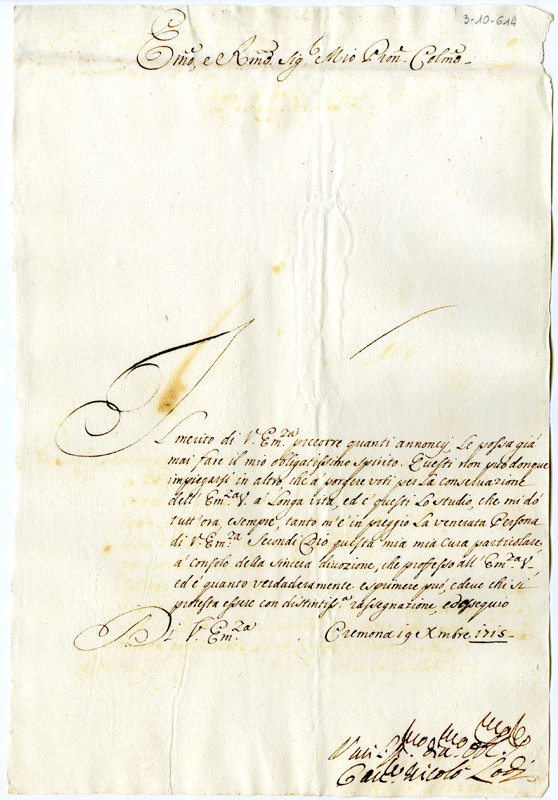 3-10-614
Emo, e Rmo. Sig.r Mio Pron. Colmo.
Il merito di V. Em.za precorre quanti annoncij Le possa già
mai fare il mio obligatissimo spirito. Questi non può donque
impiegarsi in altro, che a porgere voti per la conservazione
dell' Em.za V. a' Longa vita, ed e' questi Lo studio, che mi dò
tutt' ora, e sempre, tanto m'è in preggio La venerata Persona
di V. Em.za Secondi Dio questa mia mia Cura particolare,
a' consolo della sincera divozione, che professo all' Em.za V.
ed e' quanto verdaderamente esprimere può, e deve chi si
protesta essere con distintiss.a rassegnazione, ed ossequio
Di V. Em.za Cremona 19 Xmbre. 1715.
Nicolò Lodi